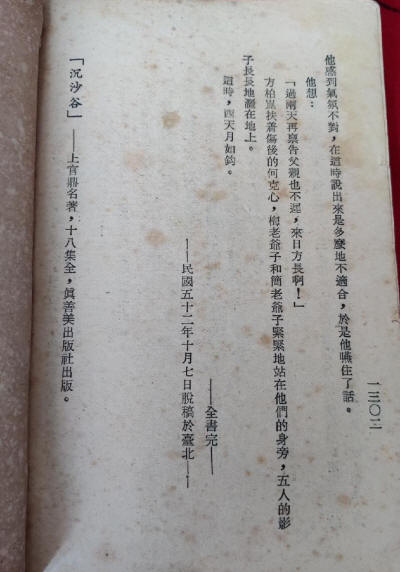 一三〇二
他感到氣氛不對，在這時說出來是多麼地不適合，於是他嚥住了話。
他想：
「過兩天再禀告父親也不遲，來日方長啊！」
方柏崑扶着傷後的何克心，梅老爺子和簡老爺子緊緊地站在他們的身旁，五人的影
子長長地灑在地上。
這時，西天月如鈎。
——全書完——
——民國五十二年十月七日脫稿於臺北——
「沉沙谷」——上官鼎名著，十八集全，眞善美出版社出版。